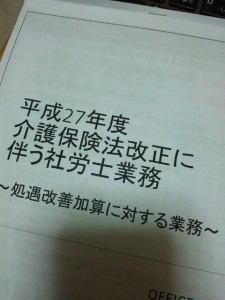 平成27年度
介護保険法改正に
伴う社労士業務
～処遇改善加算に対する業務～
OFFICE